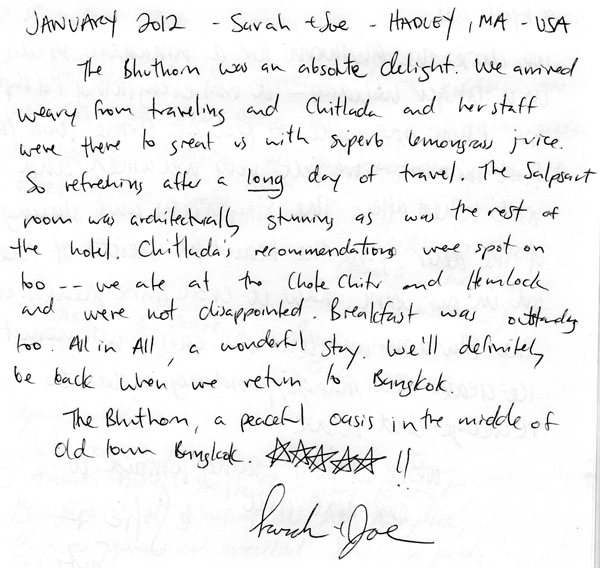 JANUARY 2012 - Sarah + Joe - HADLEY, MA - USA
The Bhuthorn was an absolute delight. We arrived
weary from traveling and Chitlada and her staff
were there to great us with superb lemongrass juice.
So refreshing after a long day of travel. The Salpsart
room was architecturally stunning as was the rest of
the hotel. Chitlada's recommendations were spot on
too -- we ate at the Chote Chitr and Hemlock
and were not disappointed. Breakfast was outstanding
too. All in All, a wonderful stay. We'll definitely
be back when we return to Bangkok.
The Bhuthorn, a peaceful oasis in the middle of
Old town Bangkok. ☆☆☆☆☆ !!
Sarah + Joe